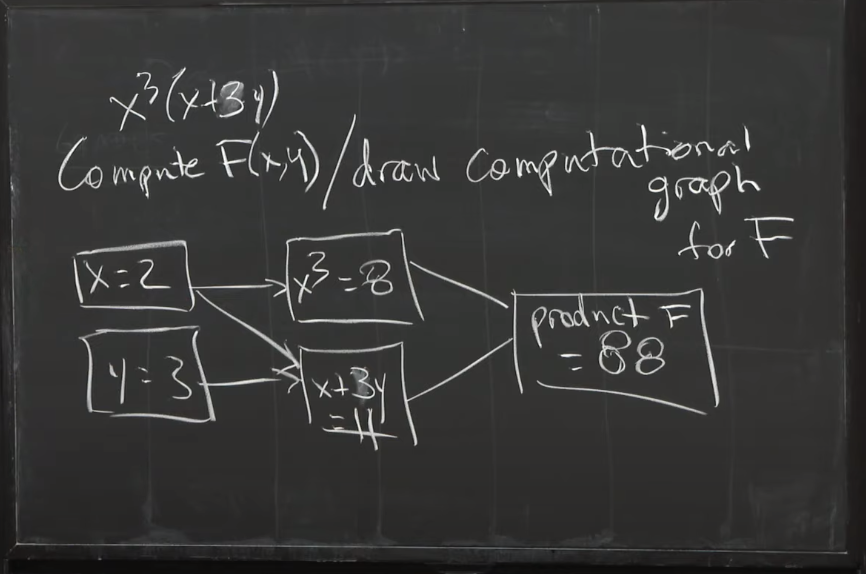 x³(x+3y)
Compute F(x,y)/draw computational
graph
for F
x=2
x³=8
y=3
x+3y
=11
product F
=88